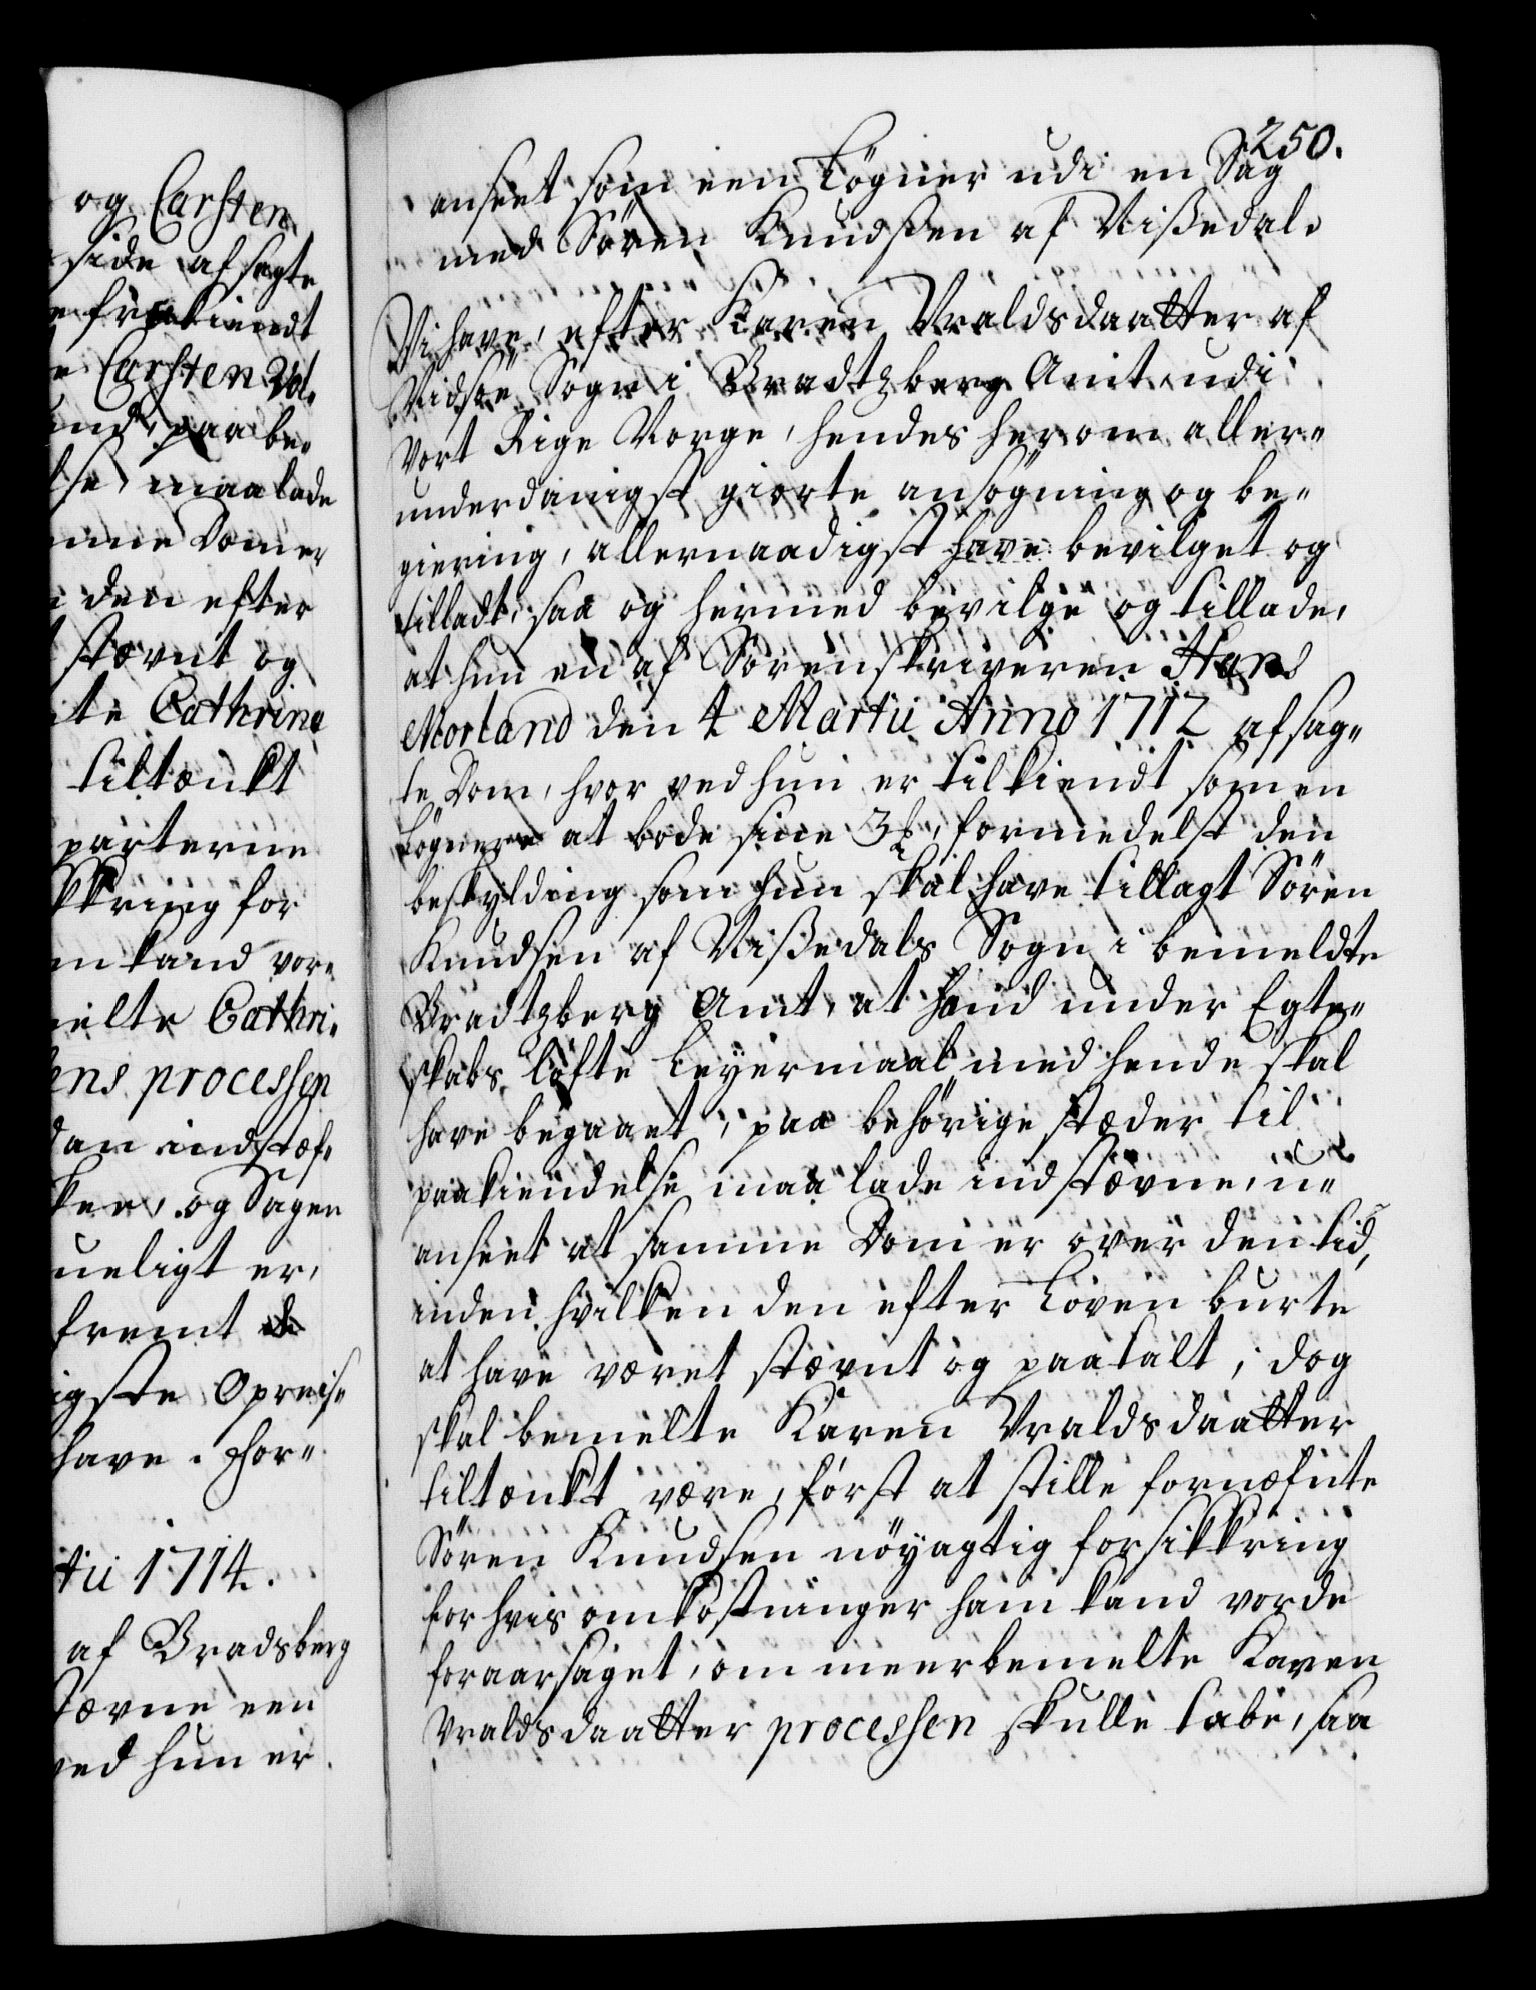 og Carsten
side afsagte
frakiendt
Carsten Vol„
paa be„
lse, maa lade
Domer
den efter
stevnt og
te Cathrine
tiltænkt
parterne
kkring for
kand vor„
melte Cathri„
ens processen
indstef„
og Sagen
ueligt er,
fremt
igste Opreis„
have. For„
tii 1714.
af Bradsberg
stævne een
ved hun er
250.
anseet som een Løgner udi en Sag
med Sören Knudsen af Nissedal.
Vi have, efter Karen Vraldsdaatter af
Vidsøe Sogn i Bradtzberg Amt udi
Vort Rige Norge, hendes herom aller„
underdanigst giorte ansögning og be„
giering, allernaadigst have bevilget og
tilladt, saa og hermed bevilge og tillade,
at hun en af Sorenskriveren Hans
Morland den 4 Martii Anno 1712 afsag„
te Dom, hvor ved hun er tilkiendt som en
Løgnere at bøde sine 3 , formedelst den
beskylding som hun skal have tillagt Sören
Knudsen af Nissedals Sogn i bemeldte
Bradtzberg Amt, at hand under Egte„
skabs løfte Leyermaal med hende skal
have begaaet, paa behörige stæder til
paakiendelse maa lade indstævne, u„
anseet at samme Dom er over den tid,
inden hvilken den efter Loven burte
at have været stævnt og paatalt, dog
skal bemelte Karen Vraldsdaatter
tiltænkt være, först at stille fornæfnte
Sören Knudsen nöyagtig forsikkring
for hvis omkostninger ham kand vorde
foraarsaget, om meerbemelte Karen
Vraldsdaatter processen skulle tabe, saa